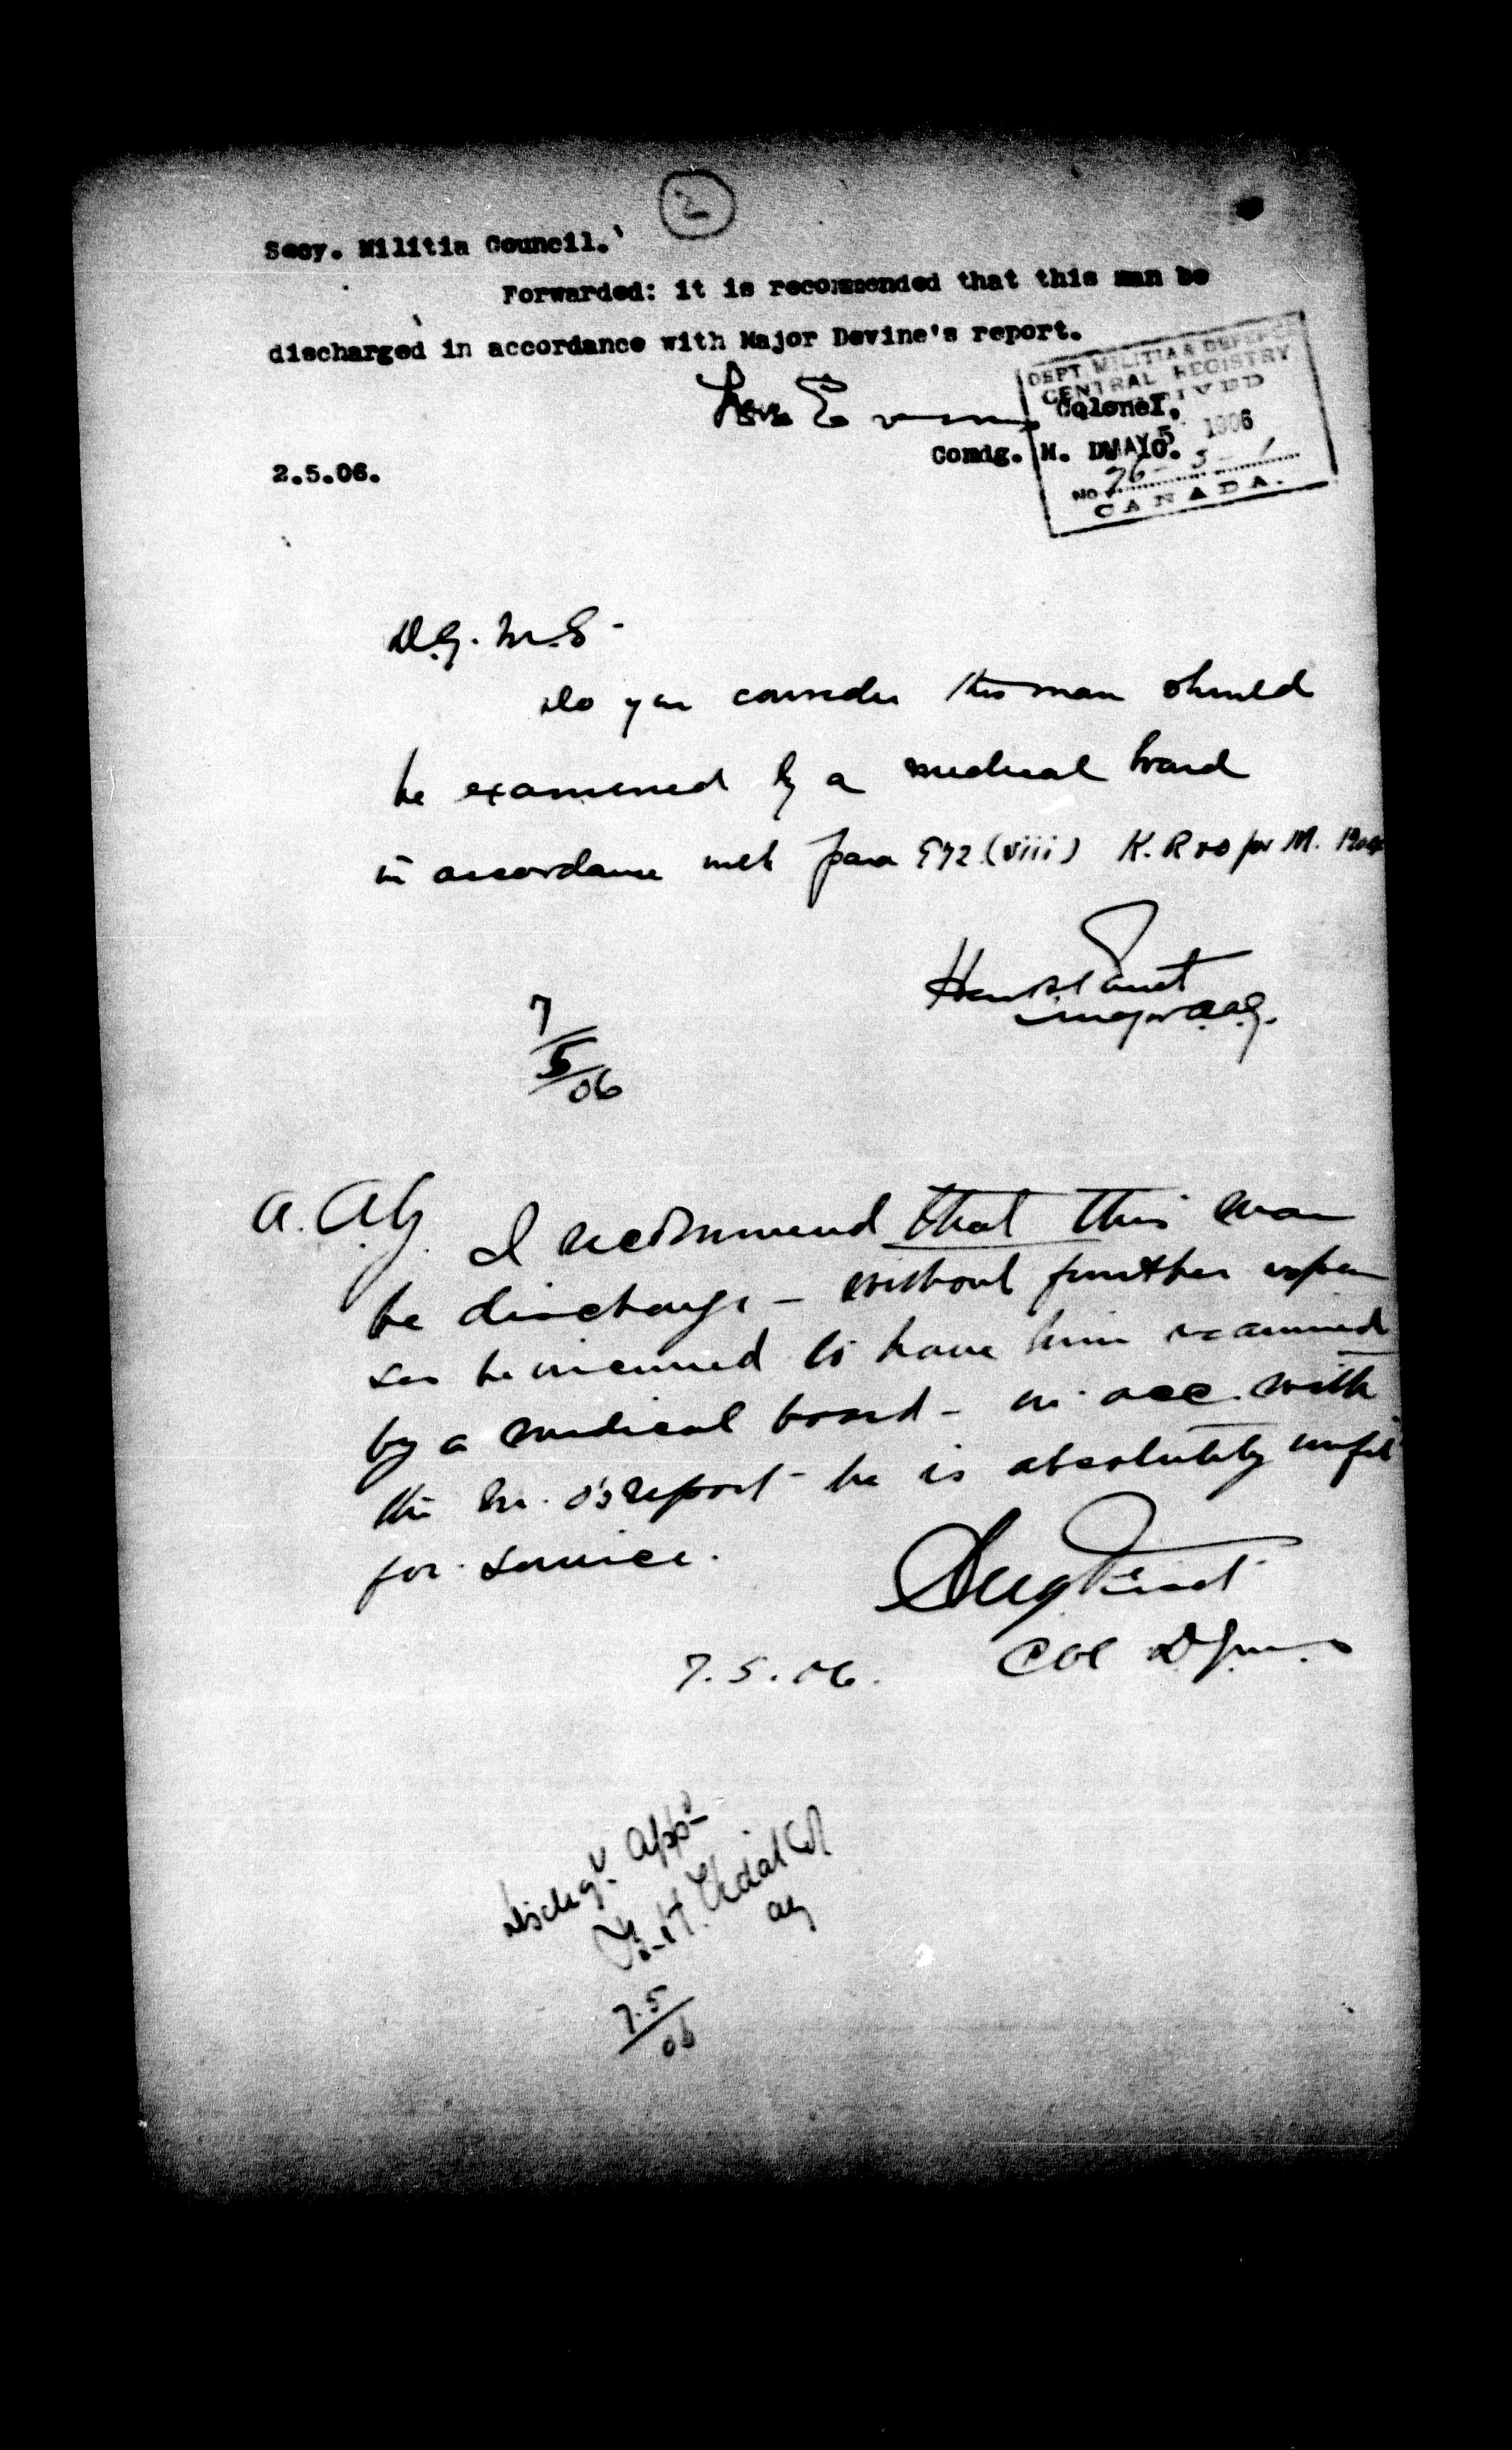 2
Secy. Militia Council.
Forwarded: it is recommended that this man be
discharged in accordance with Major Devine's report.
DEPT. MILITIA & DEFENCE
CENTRAL REGISTRY
RECEIVED
Colonel,
MAY 5 1906
Comdg. M. D. 10.
No 76-3-1
CANADA.
2.5.06.
D.G.M.S-
Do you consider this man should
be examined by a medical board
in accordance with para 572 (viii) K.R & O for M.
Major A.A.G.
7/5/06
A.A.G. I recommend that this man
be discharge - without further expen
ses be incurred to have him examined
by a medical board - in acc. with
the M.O's report - he is absolutely unfit
for service.
Col D.G.M.S
7.5.06.
Dischge App'd
Col
AG
7.5/06